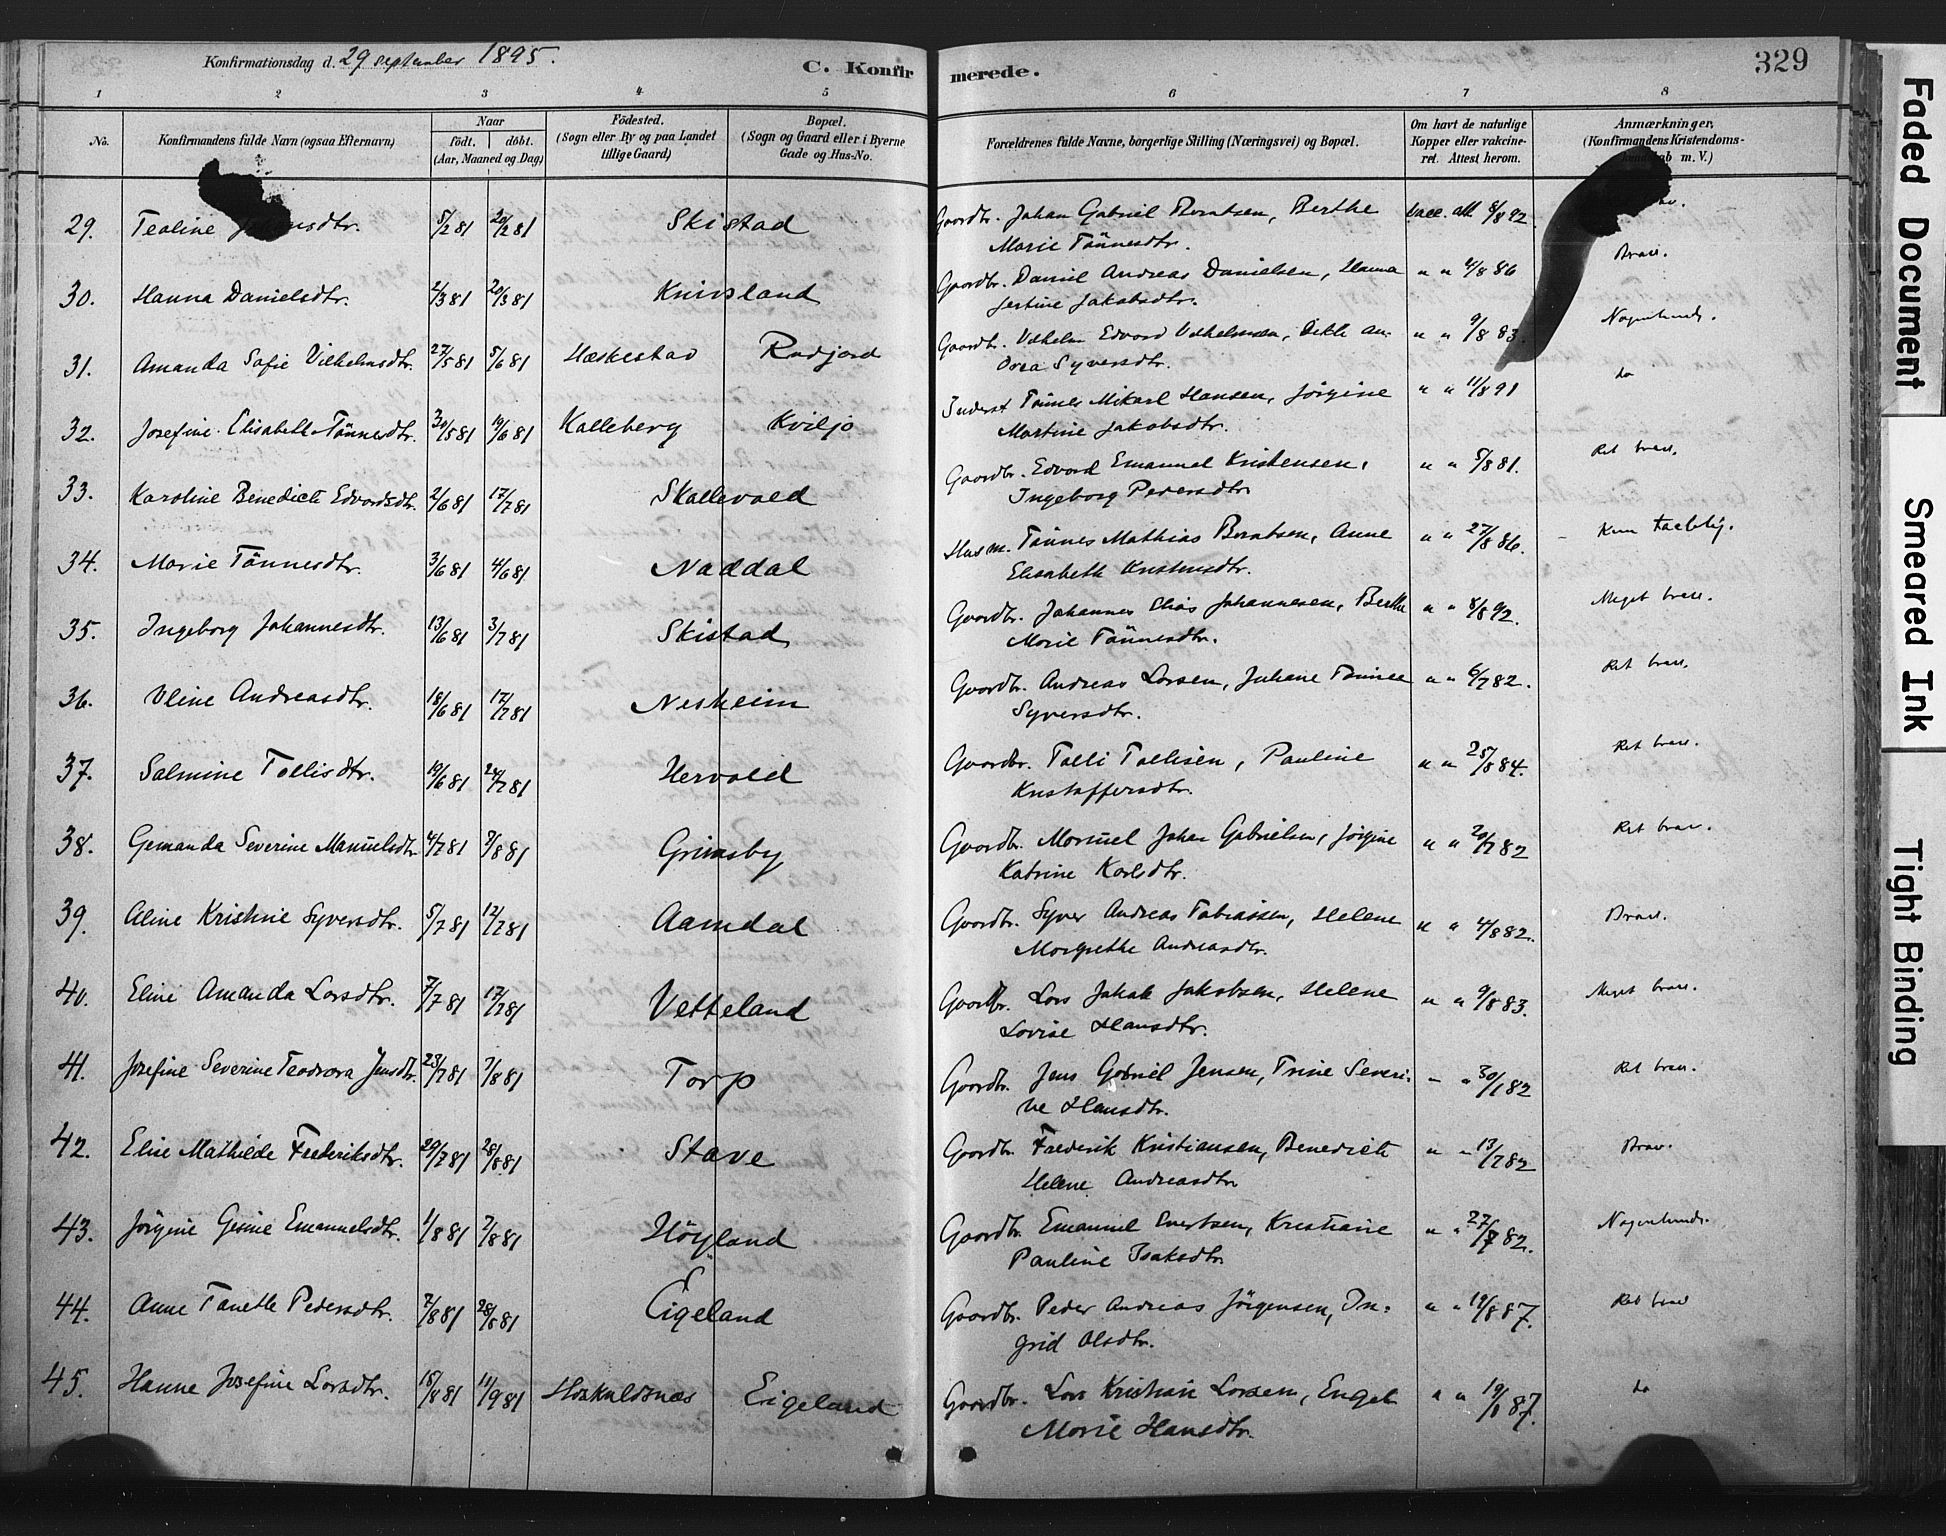 Konfirmationsdag d. 29 september 1895.
C. Konfirmerede.
329
1 2 3 4 5 6 7 8
No.
Konfirmandens fulde Navn (ogsaa Efternavn)
Naar
födt. döbt.
(Aar, Maaned og Dag)
Födested.
(Sogn eller By og paa Landet
tillige Gaard)
Bopæl.
(Sogn og Gaard eller i Byerne
Gade og Hus-No.
Forældrenes fulde Navne, borgerlige Stilling (Næringsvei) og Bopæl.
Om havt de naturlige
Kopper eller vakcine-
ret. Attest herom.
Anmærkninger,
(Konfirmandens Kristendoms-
m. V.)
29. Teoline 5/2 81 20/2 81 Skistad Gaardbr. Johan Gabriel Berntsen, Berthe vacc. att. 8/8 92
Marie Tönnesdtr.
30. Hanna Danielsdtr. 2/3 81 20/3 81 Knivsland Gaardbr. Daniel Andreas Danielsen, Hanna " " 4/8 86 Brav.
Jertine Jakobsdtr.
31. Amanda Sofie Vilhelmsdtr. 27/5 81 5/6 81 Hæskestad Rodjord Gaardbr. Vilhelm Edvard Vilhelmsen, " " 9/8 83 Nogenlunde.
Syversdtr.
32. Josefine Elisabeth Tönnesdtr. 30/5 81 19/6 81 Kalleberg Kviljo Inderst Tönnes Mikael Hansen, Jörgine " " 11/8 91 do
Martine Jakobsdtr.
33. Karoline Benedicte Edvardsdtr. 2/6 81 17/7 81 Skallevold Gaardbr. Edvard Emanuel Kristensen, " " 5/8 81. Ret brav.
Ingeborg Pedersdtr
34. Marie Tönnesdtr. 3/6 81 4/6 81 Naddal Husm. Tönnes Mathias Berntsen, Anne " " 27/8 86. Kun taalelig.
Elisabeth Kristensdtr.
35. Ingeborg Johannesdtr. 13/6 81 3/7 81 Skistad Gaardbr. Johannes Elias Johannesen, Berthe " " 8/8 92. Meget brav.
Marie Tönnesdtr.
36. Oline Andreasdtr. 18/6 81 17/7 81 Nesheim Gaardbr. Andreas Larsen, Juliane Tomine " " 6/7 82. Ret brav.
Syversdtr.
37. Salmine Tollisdtr. 19/6 81 24/7 81 Hervold Gaardbr. Tolli Tollisen, Pauline " " 25/8 84. Ret brav.
Kristoffersdtr.
38. Gemanda Severine Manuelsdtr 4/7 81 7/8 81 Grimsby Gaardbr. Manuel Johan Gabrielsen, Jörgine " " 20/7 82 Ret brav.
Katrine Karlsdtr.
39. Aline Kristine Syversdtr. 5/7 81 12/7 81 Aamdal Gaardbr. Syver Andreas Tobiassen, Helene " " 4/8 82. Brav.
Margrethe Andreasdtr.
40. Eline Amanda Larsdtr. 7/7 81 17/7 81 Vetteland Gaardbr. Lars Jakob Jakobsen, Helene " " 9/8 83. Meget brav.
Lovise Hansdtr.
41. Josefine Severine Teodora Jensdtr. 23/7 81 7/8 81 Torp Gaardbr. Jens Gabriel Jensen, Trine Severi- " " 30/1 82 Ret brav.
ne Hansdtr.
42. Elise Mathilde Frederiksdtr. 29/7 81 28/8 81 Stave Gaardbr. Frederik Kristiansen, Benedicte " " 13/7 82 Brav.
Helene Andreasdtr
43. Jörgine Gesine Emanuelsdtr. 1/8 81 7/8 81 Höyland Gaardbr. Emanuel Evertsen, Kristiane " " 27/7 82. Nogenlunde.
Pauline Isaksdtr
44. Anne Tanette Pedersdtr. 7/8 81 28/8 81 Eigeland Gaardbr. Peder Andreas Jörgensen, In- " " 19/8 87. Ret brav
grid Olsdtr.
45. Hanne Josefine Larsdtr. 15/8 81 11/9 81 Hoskuldsnæs Eigeland Gaardbr. Lars Kristian Larsen, Engel " " 87. do
Marie Hansdtr.
Faded Document
Smeared Ink
Tight Binding